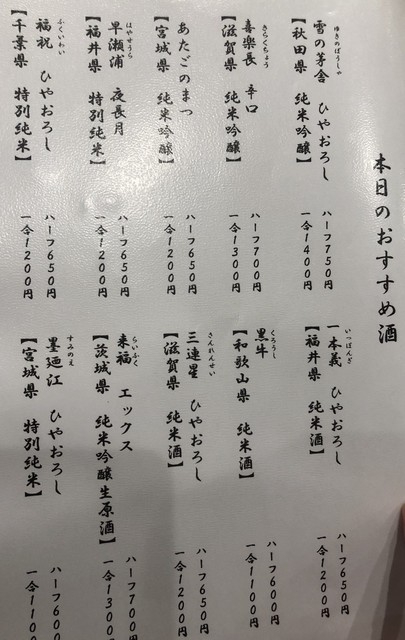 本日のおすすめ酒
ゆきのぼうしゃ
雪の茅舎 ひやおろし
【秋田県 純米吟醸】
ハーフ750円
一合1400円
きらくちょう
喜楽長 辛口
【滋賀県 純米吟醸】
ハーフ700円
一合1300円
あたごのまつ
【宮城県 純米吟醸】
ハーフ650円
一合1200円
はやせうら
早瀬浦 夜長月
【福井県 特別純米】
ハーフ650円
一合1200円
ふくいわい
福祝 ひやおろし
【千葉県 特別純米】
ハーフ650円
一合1200円
いっぽんぎ
一本義 ひやおろし
【福井県 純米酒】
ハーフ650円
一合1200円
くろうし
黒牛
【和歌山県 純米酒】
ハーフ600円
一合1100円
さんれんせい
三連星 ひやおろし
【滋賀県 純米酒】
ハーフ650円
一合1200円
らいふく
来福 エックス
【茨城県 純米吟醸生原酒】
ハーフ700円
一合1300
すみのえ
墨廼江 ひやおろし
【宮城県 特別純米】
ハーフ600
一合110